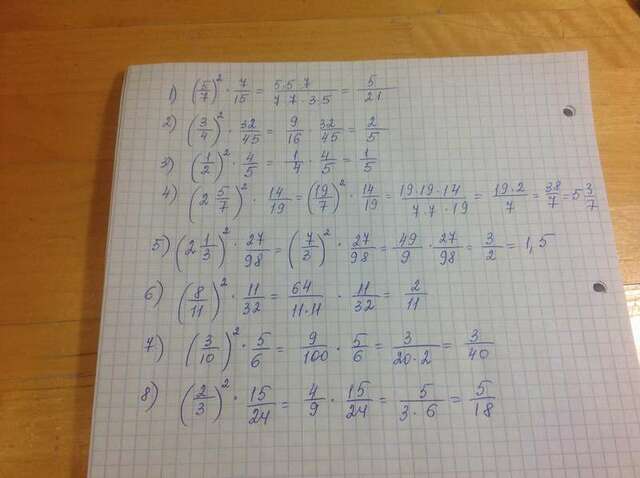 1) (5/7)² · 7/15 = 5·5·7/7·7·3·5 = 5/21
2) (3/4)² · 32/45 = 9/16 · 32/45 = 2/5
3) (1/2)² · 4/5 = 1/4 · 4/5 = 1/5
4) (2 5/7)² · 14/19 = (19/7)² · 14/19 = 19·19·14/7·7·19 = 19·2/7 = 38/7 = 5 3/7
5) (2 1/3)² · 27/98 = (7/3)² · 27/98 = 49/9 · 27/98 = 3/2 = 1,5
6) (8/11)² · 11/32 = 64/11·11 · 11/32 = 2/11
7) (3/10)² · 5/6 = 9/100 · 5/6 = 3/20·2 = 3/40
8) (2/3)² · 15/24 = 4/9 · 15/24 = 5/3·6 = 5/18